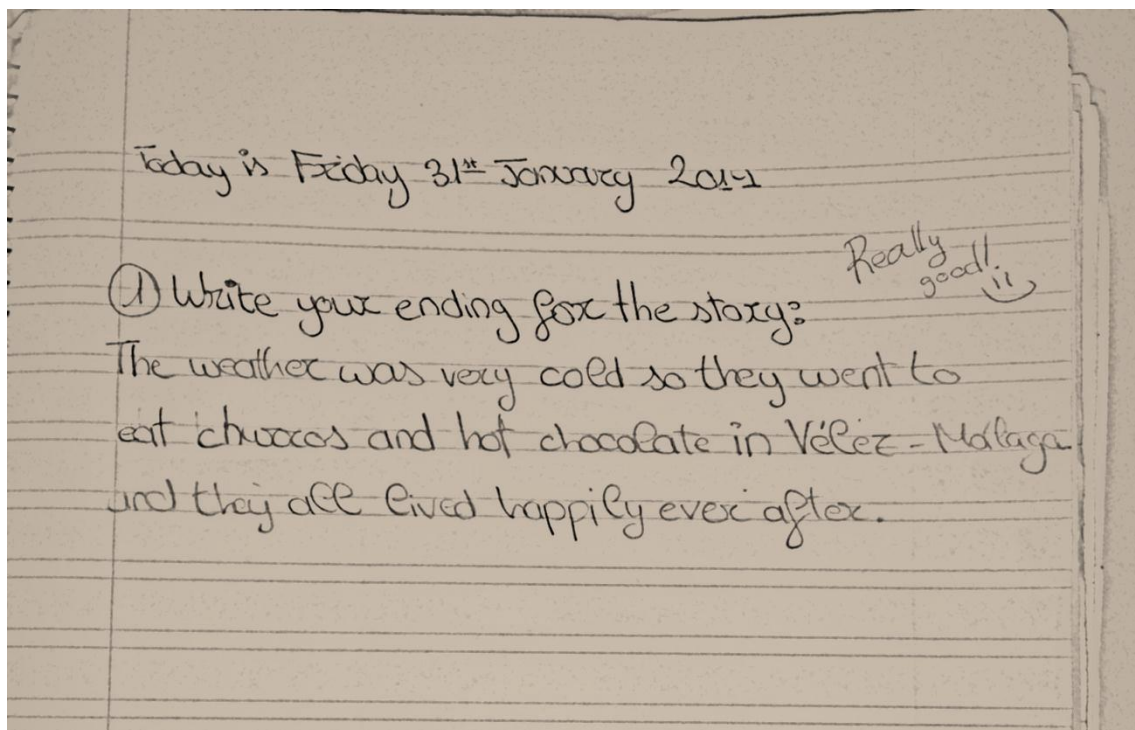 Today is Friday 31st January 2014
Really
good!
① Write your ending for the story:
The weather was very cold so they went to
eat churros and hot chocolate in Vélez-Málaga
and they all lived happily ever after.